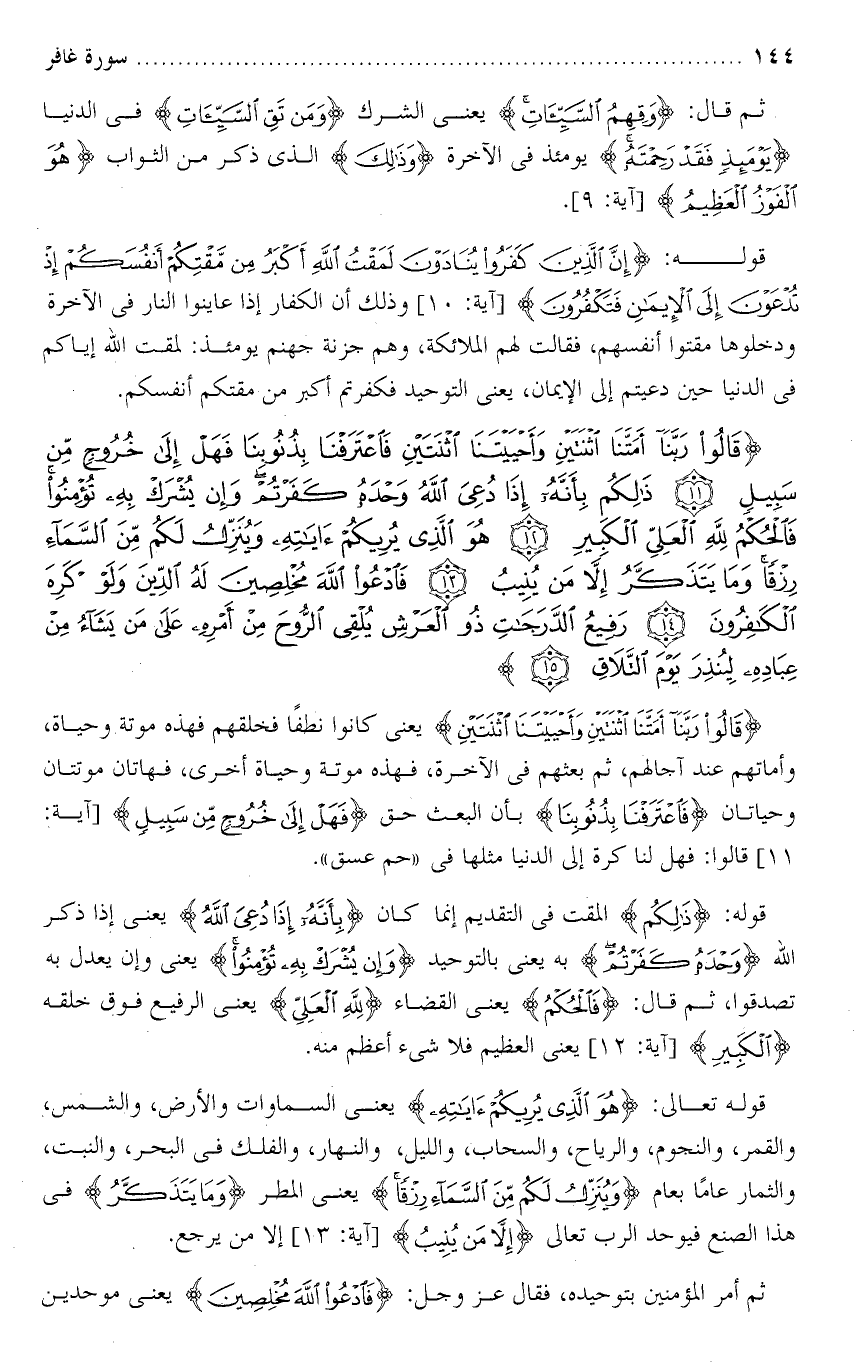 ١٤٤ ........................................................................ سورة غافر
ثم قال: ﴿وَقِهِمُ ٱلسَّيِّـَٔاتِۚ﴾ يعنى الشرك ﴿وَمَن تَقِ ٱلسَّيِّـَٔاتِ﴾ فى الدنيا
﴿يَوْمَئِذٍ فَقَدْ رَحِمْتَهُۥۚ﴾ يومئذ فى الآخرة ﴿وَذَٰلِكَ﴾ الذى ذكر من الثواب ﴿هُوَ
ٱلْفَوْزُ ٱلْعَظِيمُ﴾ [آية: ٩].
قولــه: ﴿إِنَّ ٱلَّذِينَ كَفَرُوا۟ يُنَادَوْنَ لَمَقْتُ ٱللَّهِ أَكْبَرُ مِن مَّقْتِكُمْ أَنفُسَكُمْ إِذْ
تُدْعَوْنَ إِلَى ٱلْإِيمَٰنِ فَتَكْفُرُونَ﴾ [آية: ١٠] وذلك أن الكفار إذا عاينوا النار فى الآخرة
ودخلوها مقتوا أنفسهم، فقالت لهم الملائكة، وهم جزنة جهنم يومئـذ: لمقت الله إياكم
فى الدنيا حين دعيتم إلى الإيمان، يعنى التوحيد فكفرتم أكبر من مقتكم أنفسكم.
﴿قَالُوا۟ رَبَّنَآ أَمَتَّنَا ٱثْنَتَيْنِ وَأَحْيَيْتَنَا ٱثْنَتَيْنِ فَٱعْتَرَفْنَا بِذُنُوبِنَا فَهَلْ إِلَىٰ خُرُوجٍ مِّن
سَبِيلٍ ١١ ذَٰلِكُم بِأَنَّهُۥٓ إِذَا دُعِىَ ٱللَّهُ وَحْدَهُۥ كَفَرْتُمْۖ وَإِن يُشْرَكْ بِهِۦ تُؤْمِنُوا۟ۚ
فَٱلْحُكْمُ لِلَّهِ ٱلْعَلِىِّ ٱلْكَبِيرِ ١٢ هُوَ ٱلَّذِى يُرِيكُمْ ءَايَٰتِهِۦ وَيُنَزِّلُ لَكُم مِّنَ ٱلسَّمَآءِ
رِزْقًاۚ وَمَا يَتَذَكَّرُ إِلَّا مَن يُنِيبُ ١٣ فَٱدْعُوا۟ ٱللَّهَ مُخْلِصِينَ لَهُ ٱلدِّينَ وَلَوْ كَرِهَ
ٱلْكَٰفِرُونَ ١٤ رَفِيعُ ٱلدَّرَجَٰتِ ذُو ٱلْعَرْشِ يُلْقِى ٱلرُّوحَ مِنْ أَمْرِهِۦ عَلَىٰ مَن يَشَآءُ مِنْ
عِبَادِهِۦ لِيُنذِرَ يَوْمَ ٱلتَّلَاقِ ١٥﴾
﴿قَالُوا۟ رَبَّنَآ أَمَتَّنَا ٱثْنَتَيْنِ وَأَحْيَيْتَنَا ٱثْنَتَيْنِ﴾ يعنى كانوا نطفًا فخلقهم فهذه موتة وحياة،
وأماتهم عند آجالهم، ثم بعثهم فى الآخرة، فهذه موتة وحياة أخرى، فهاتان موتتان
وحياتان ﴿فَٱعْتَرَفْنَا بِذُنُوبِنَا﴾ بأن البعث حق ﴿فَهَلْ إِلَىٰ خُرُوجٍ مِّن سَبِيلٍ﴾ [آية:
١١] قالوا: فهل لنا كرة إلى الدنيا مثلها فى «حم عسق».
قوله: ﴿ذَٰلِكُم﴾ المقت فى التقديم إنما كان ﴿بِأَنَّهُۥٓ إِذَا دُعِىَ ٱللَّهُ﴾ يعنى إذا ذكر
الله ﴿وَحْدَهُۥ كَفَرْتُمْۖ﴾ به يعنى بالتوحيد ﴿وَإِن يُشْرَكْ بِهِۦ تُؤْمِنُوا۟ۚ﴾ يعنى وإن يعدل به
تصدقوا، ثم قال: ﴿فَٱلْحُكْمُ﴾ يعنى القضاء ﴿لِلَّهِ ٱلْعَلِىِّ﴾ يعنى الرفيع فوق خلقه
﴿ٱلْكَبِيرِ﴾ [آية: ١٢] يعنى العظيم فلا شىء أعظم منه.
قوله تعالى: ﴿هُوَ ٱلَّذِى يُرِيكُمْ ءَايَٰتِهِۦ﴾ يعنى السماوات والأرض، والشمس،
والقمر، والنجوم، والرياح، والسحاب، والليل، والنهار، والفلك فى البحر، والنبت،
والثمار عامًا بعام ﴿وَيُنَزِّلُ لَكُم مِّنَ ٱلسَّمَآءِ رِزْقًاۚ﴾ يعنى المطر ﴿وَمَا يَتَذَكَّرُ﴾ فى
هذا الصنع فيوحد الرب تعالى ﴿إِلَّا مَن يُنِيبُ﴾ [آية: ١٣] إلا من يرجع.
ثم أمر المؤمنين بتوحيده، فقال عز وجل: ﴿فَٱدْعُوا۟ ٱللَّهَ مُخْلِصِينَ﴾ يعنى موحدين